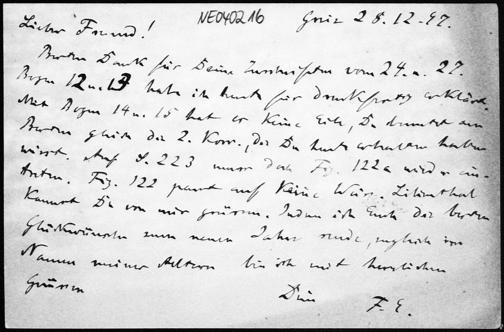 NE040216
Lieber Freund! Greiz 28.12.97.
Besten Dank für Deine Zuschriften vom 24. u. 27.
Bogen 12 u. 13 habe ich heute für druckfertig erklärt.
Mit Bogen 14 u. 15 hat es keine Eile, Du
Bogen gleich die 2. Korr., die Du heute erhalten haben
wirst. Auf S. 223 muss doch Fig. 122a wieder ein-
treten. Fig. 122 passt auf keine Weise. Lilienthal
kannst Du von mir grüssen. Indem ich Euch die besten
Glückwünsche zum neuen Jahre sende, zugleich im
Namen meiner Aeltern bin ich mit herzlichen
Grüssen Dein F. E.